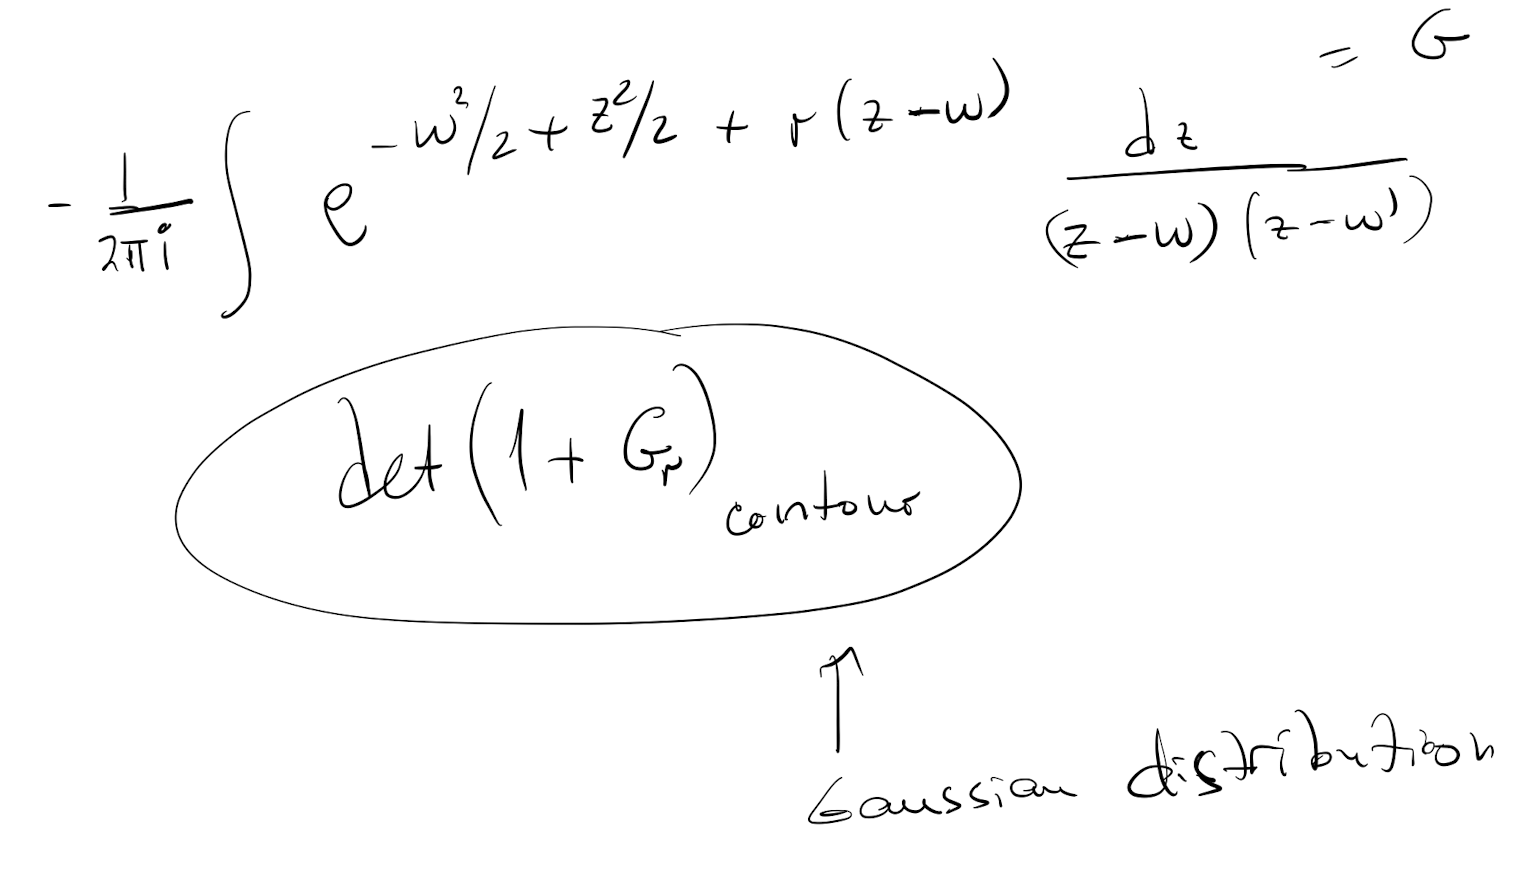 - 1/2πi ∫ e^{-w²/2 + z²/2 + r(z-w)} dz/((z-w)(z-w')) = G
det(1 + G_r)_{contour}
↑
Gaussian distribution